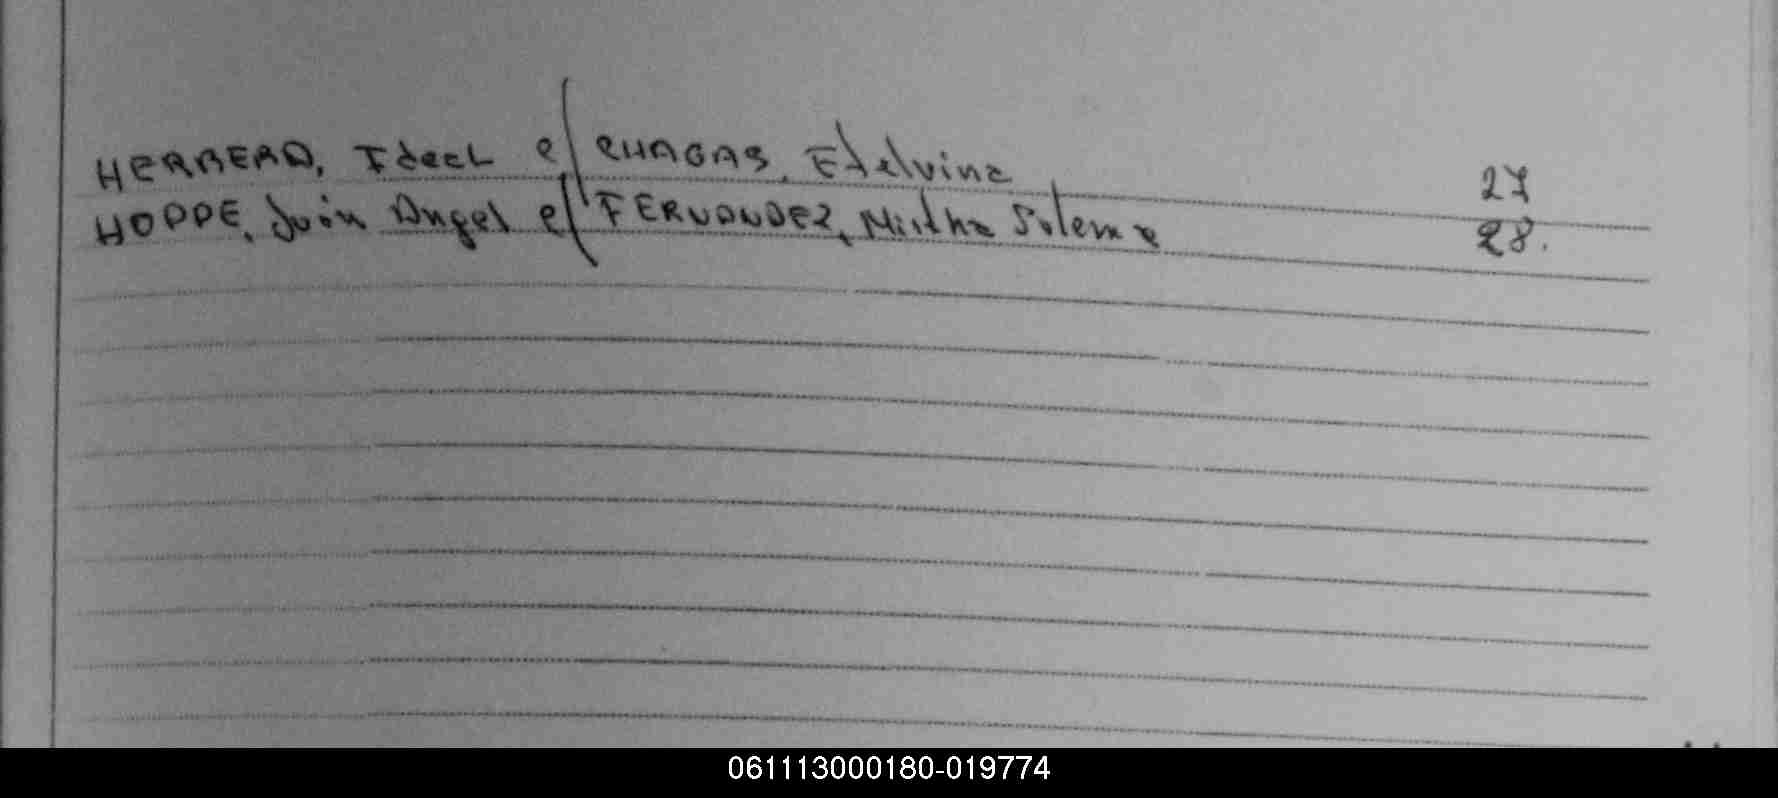 HERRERO, Ideal c/ CHAGAS, Edelvina 27
HOPPE, Juan Angel c/ FERNANDEZ, Mirtha Solema 28.
061113000180-019774